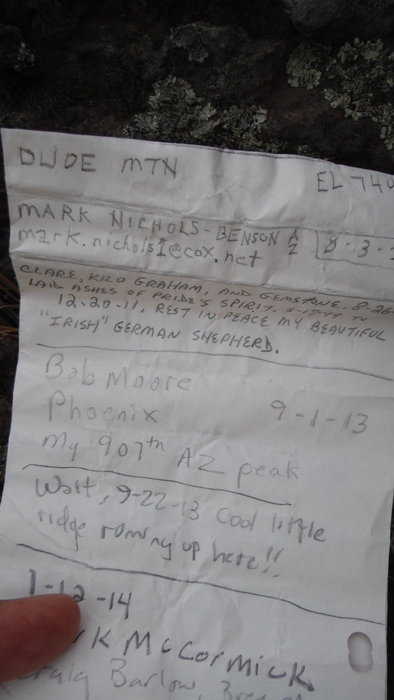 DUDE MTN EL 740
MARK NICHOLS-BENSON AZ 8-3-
mark.nichols1@cox.net
CLARE, KILO GRAHAM, AND GEMSTONE. 8-26
LAID ASHES OF PRIDE'S SPIRIT, TO
12.20-11, REST IN PEACE MY BEAUTIFUL
"IRISH" GERMAN SHEPHERD.
Bob Moore
Phoenix 9-1-13
My 907th AZ peak
Walt, 9-22-13 Cool little
ridge romny up here!!
1-12-14
K McCormick
raig Barlow,